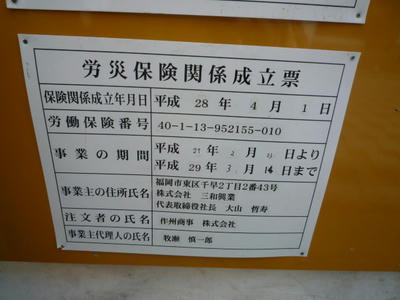 労災保険関係成立票
保険関係成立年月日 平成 28 年 4 月 1 日
労働保険番号 40-1-13-952155-010
事業の期間 平成 年 月 日より
平成 29 年 3 月 日まで
事業主の住所氏名 福岡市東区千早2丁目2番43号
株式会社 三和興業
代表取締役社長 大山 哲寿
注文者の氏名 作州商事 株式会社
事業主代理人の氏名 牧瀬 慎一郎